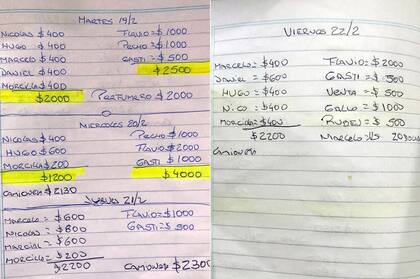 MARTES 19/2
NICOLAS $400 FLAVIO = $1000
HUGO $400 PECHO = $1000
MARCELO $400 GASTI = $500
DANIEL $400 $2500
MORCILLA $400
$2000 PERFUMERO $2000
MIERCOLES 20/2
NICOLAS $400 PECHO = $1000
HUGO $600 FLAVIO = $2000
MORCILLA $200 GASTI $1000
$1200 $4000
CAMIONEM $2130
JUEVES 21/2
MARCELO = $600 FLAVIO = $1000
NICOLAS = $800 GASTI = $500
MARCIAL = $600
MORCILLA = $200
$2200 CAMIONEM $2300
VIERNES 22/2
MARCELO = $400 FLAVIO = $2000
DANIEL = $600 GASTI = $500
HUGO = $400 VENTA = $500
NICO = $400 GALLO = $1000
MORCILLA = $400 RUBEN = $500
$2200 MARCELO
CAMIONEM